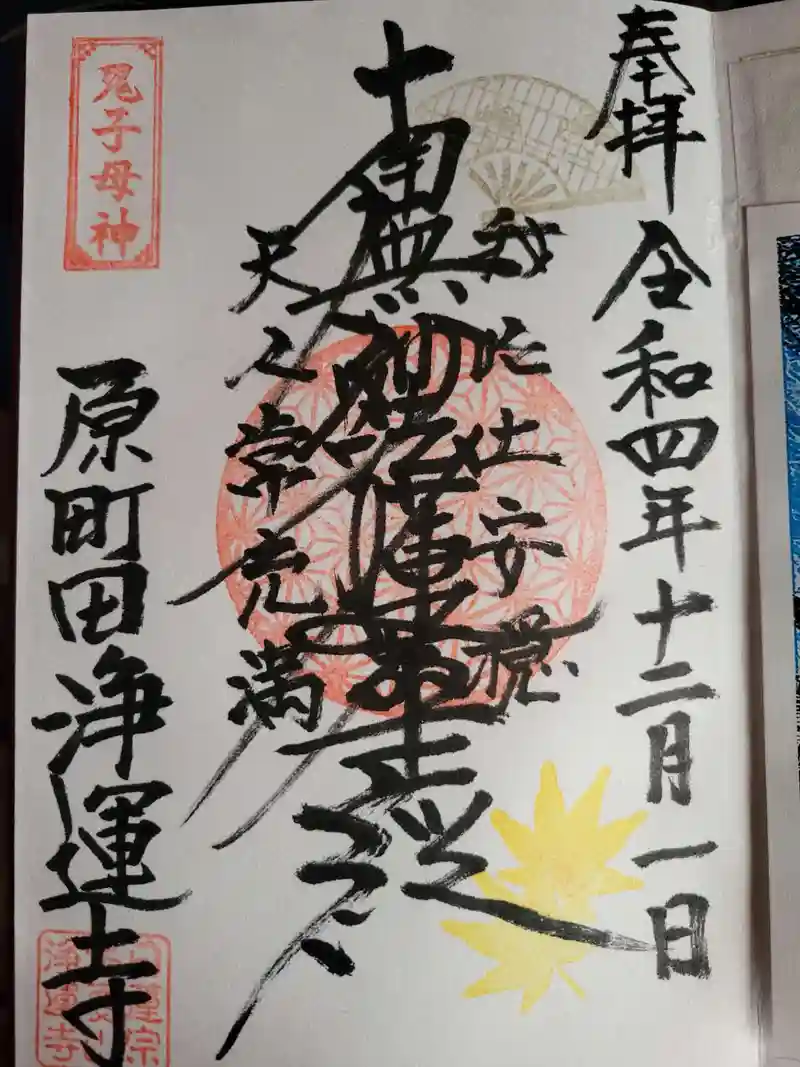 奉拝 令和四年十二月一日
我此土安穏
南無妙法蓮華経
天人常充満
鬼子母神
原町田 浄運寺